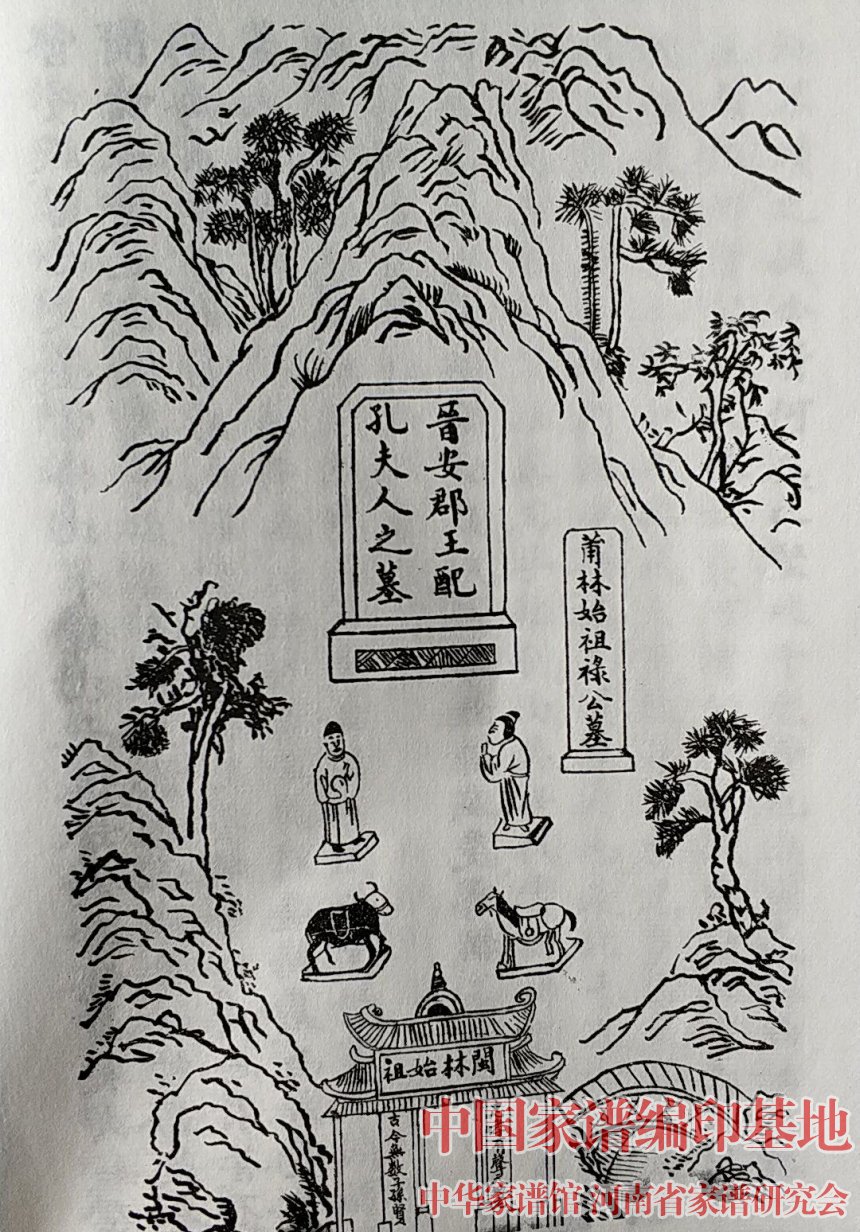 晉安郡王配
孔夫人之墓
莆林始祖祿公墓
閩林始祖
古今無數子孫賢
中国家谱编印基地
中华家谱馆 河南省家谱研究会